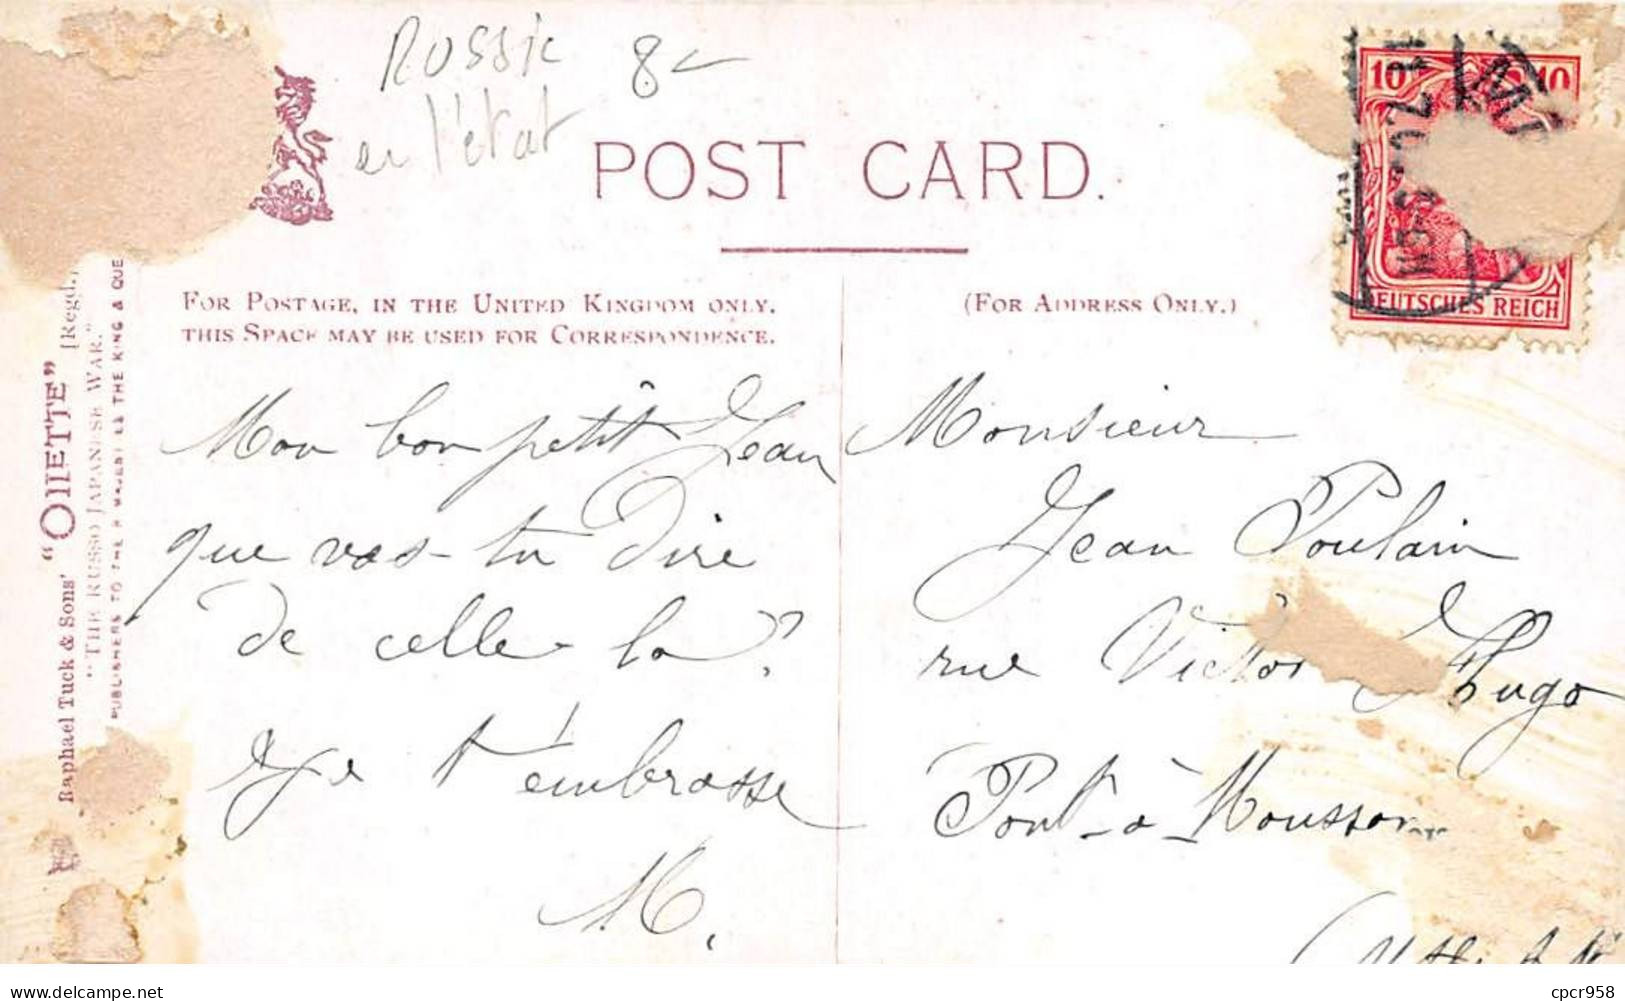 Russie 8
en l'état
POST CARD.
10 10
DEUTSCHES REICH
FOR POSTAGE, IN THE UNITED KINGDOM ONLY,
THIS SPACE MAY BE USED FOR CORRESPONDENCE.
(FOR ADDRESS ONLY.)
Raphael Tuck & Sons' "OILETTE" [Regd.]
"THE RUSSO JAPANESE WAR."
PUBLISHERS TO THEIR MAJESTIES THE KING & QUE
Mon bon petit Jean
que vas-tu dire
de celle-la?
Je t'embrasse
M.
Monsieur
Jean Poulain
rue Victor Hugo
Pont-à-Mousson
delcampe.net
cpcr958